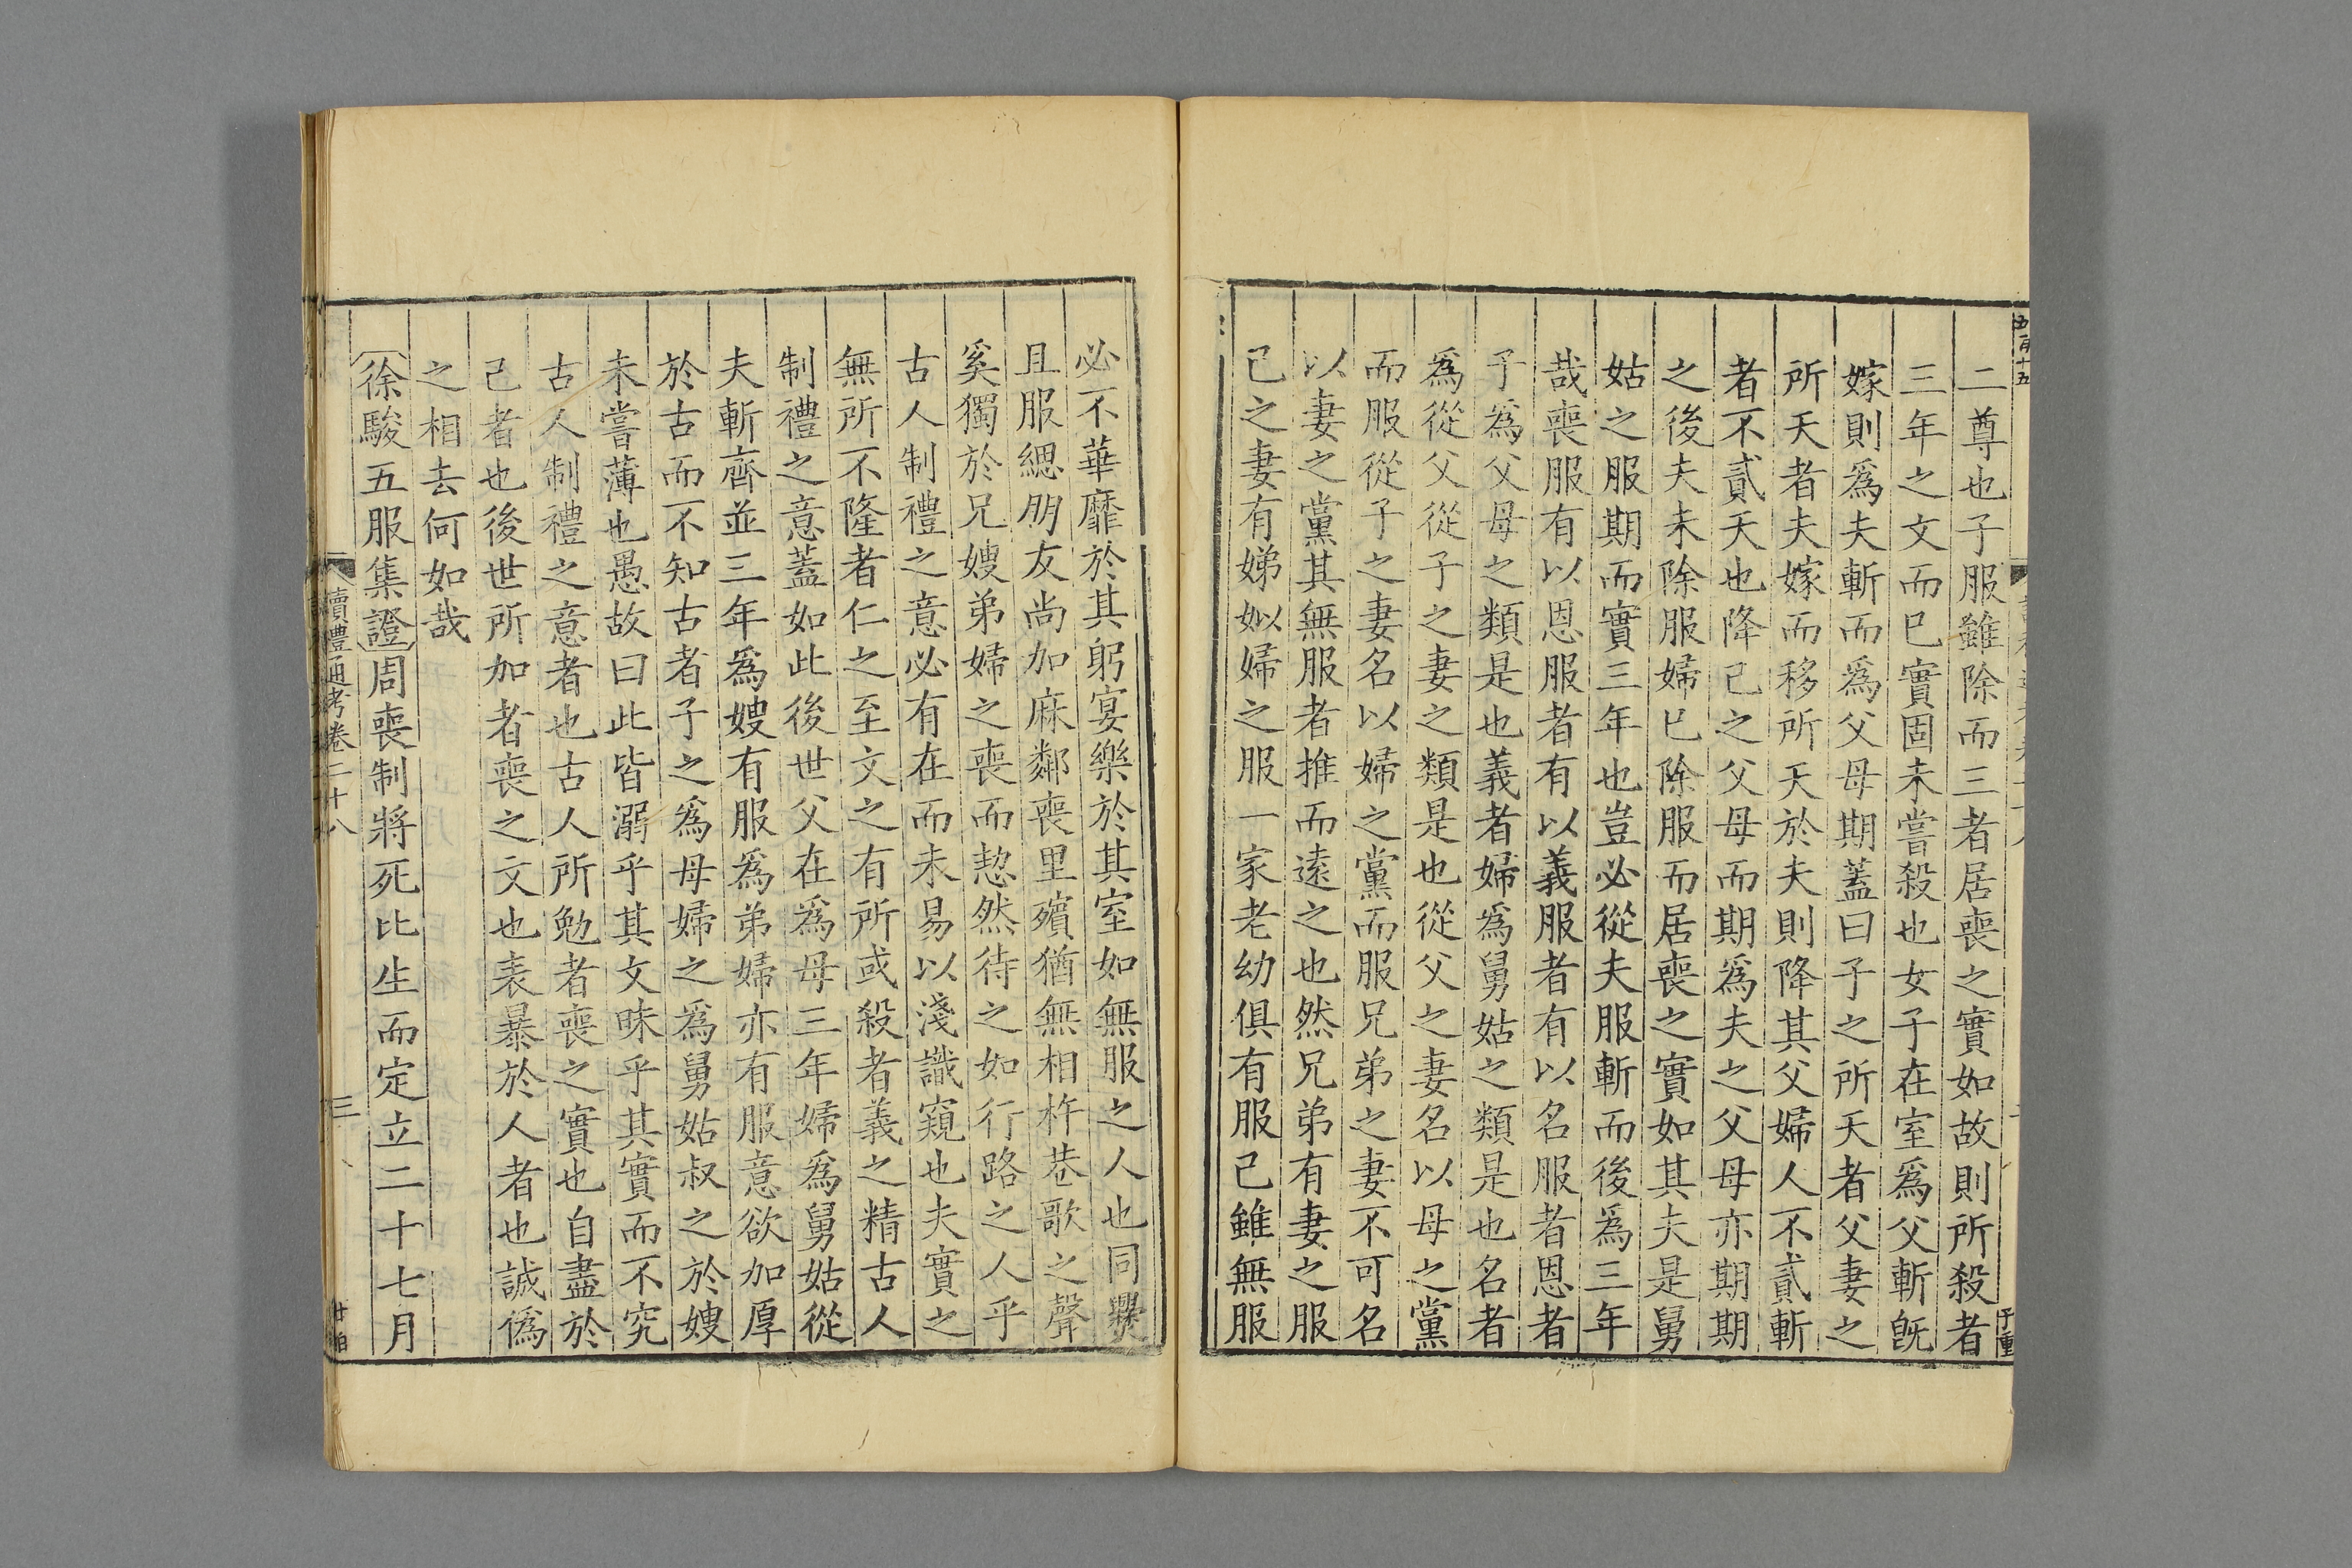 五百十五
二尊也子服雖除而三者居喪之實如故則所殺者
三年之文而巳實固未嘗殺也女子在室爲父斬旣
嫁則爲夫斬而爲父母期蓋曰子之所天者父妻之
所天者夫嫁而移所天於夫則降其父婦人不貳斬
者不貳天也降己之父母而期爲夫之父母亦期期
之後夫未除服婦巳除服而居喪之實如其夫是舅
姑之服期而實三年也豈必從夫服斬而後爲三年
哉喪服有以恩服者有以義服者有以名服者恩者
子爲父母之類是也義者婦爲舅姑之類是也名者
爲從父從子之妻之類是也從父之妻名以母之黨
而服從子之妻名以婦之黨而服兄弟之妻不可名
以妻之黨其無服者推而遠之也然兄弟有妻之服
己之妻有娣姒婦之服一家老幼俱有服己雖無服
必不華靡於其躬宴樂於其室如無服之人也同爨
且服緦朋友尚加麻鄰喪里殯猶無相杵巷歌之聲
奚獨於兄嫂弟婦之喪而恝然待之如行路之人乎
古人制禮之意必有在而未易以淺識窺也夫實之
無所不隆者仁之至文之有所或殺者義之精古人
制禮之意蓋如此後世父在爲母三年婦爲舅姑從
夫斬齊並三年爲嫂有服爲弟婦亦有服意欲加厚
於古而不知古者子之爲母婦之爲舅姑叔之於嫂
未嘗薄也愚故曰此皆溺乎其文昧乎其實而不究
古人制禮之意者也古人所勉者喪之實也自盡於
己者也後世所加者喪之文也表暴於人者也誠僞
之相去何如哉
徐駿五服集證周喪制將死比生而定立二十七月
讀禮通考卷二十八
三